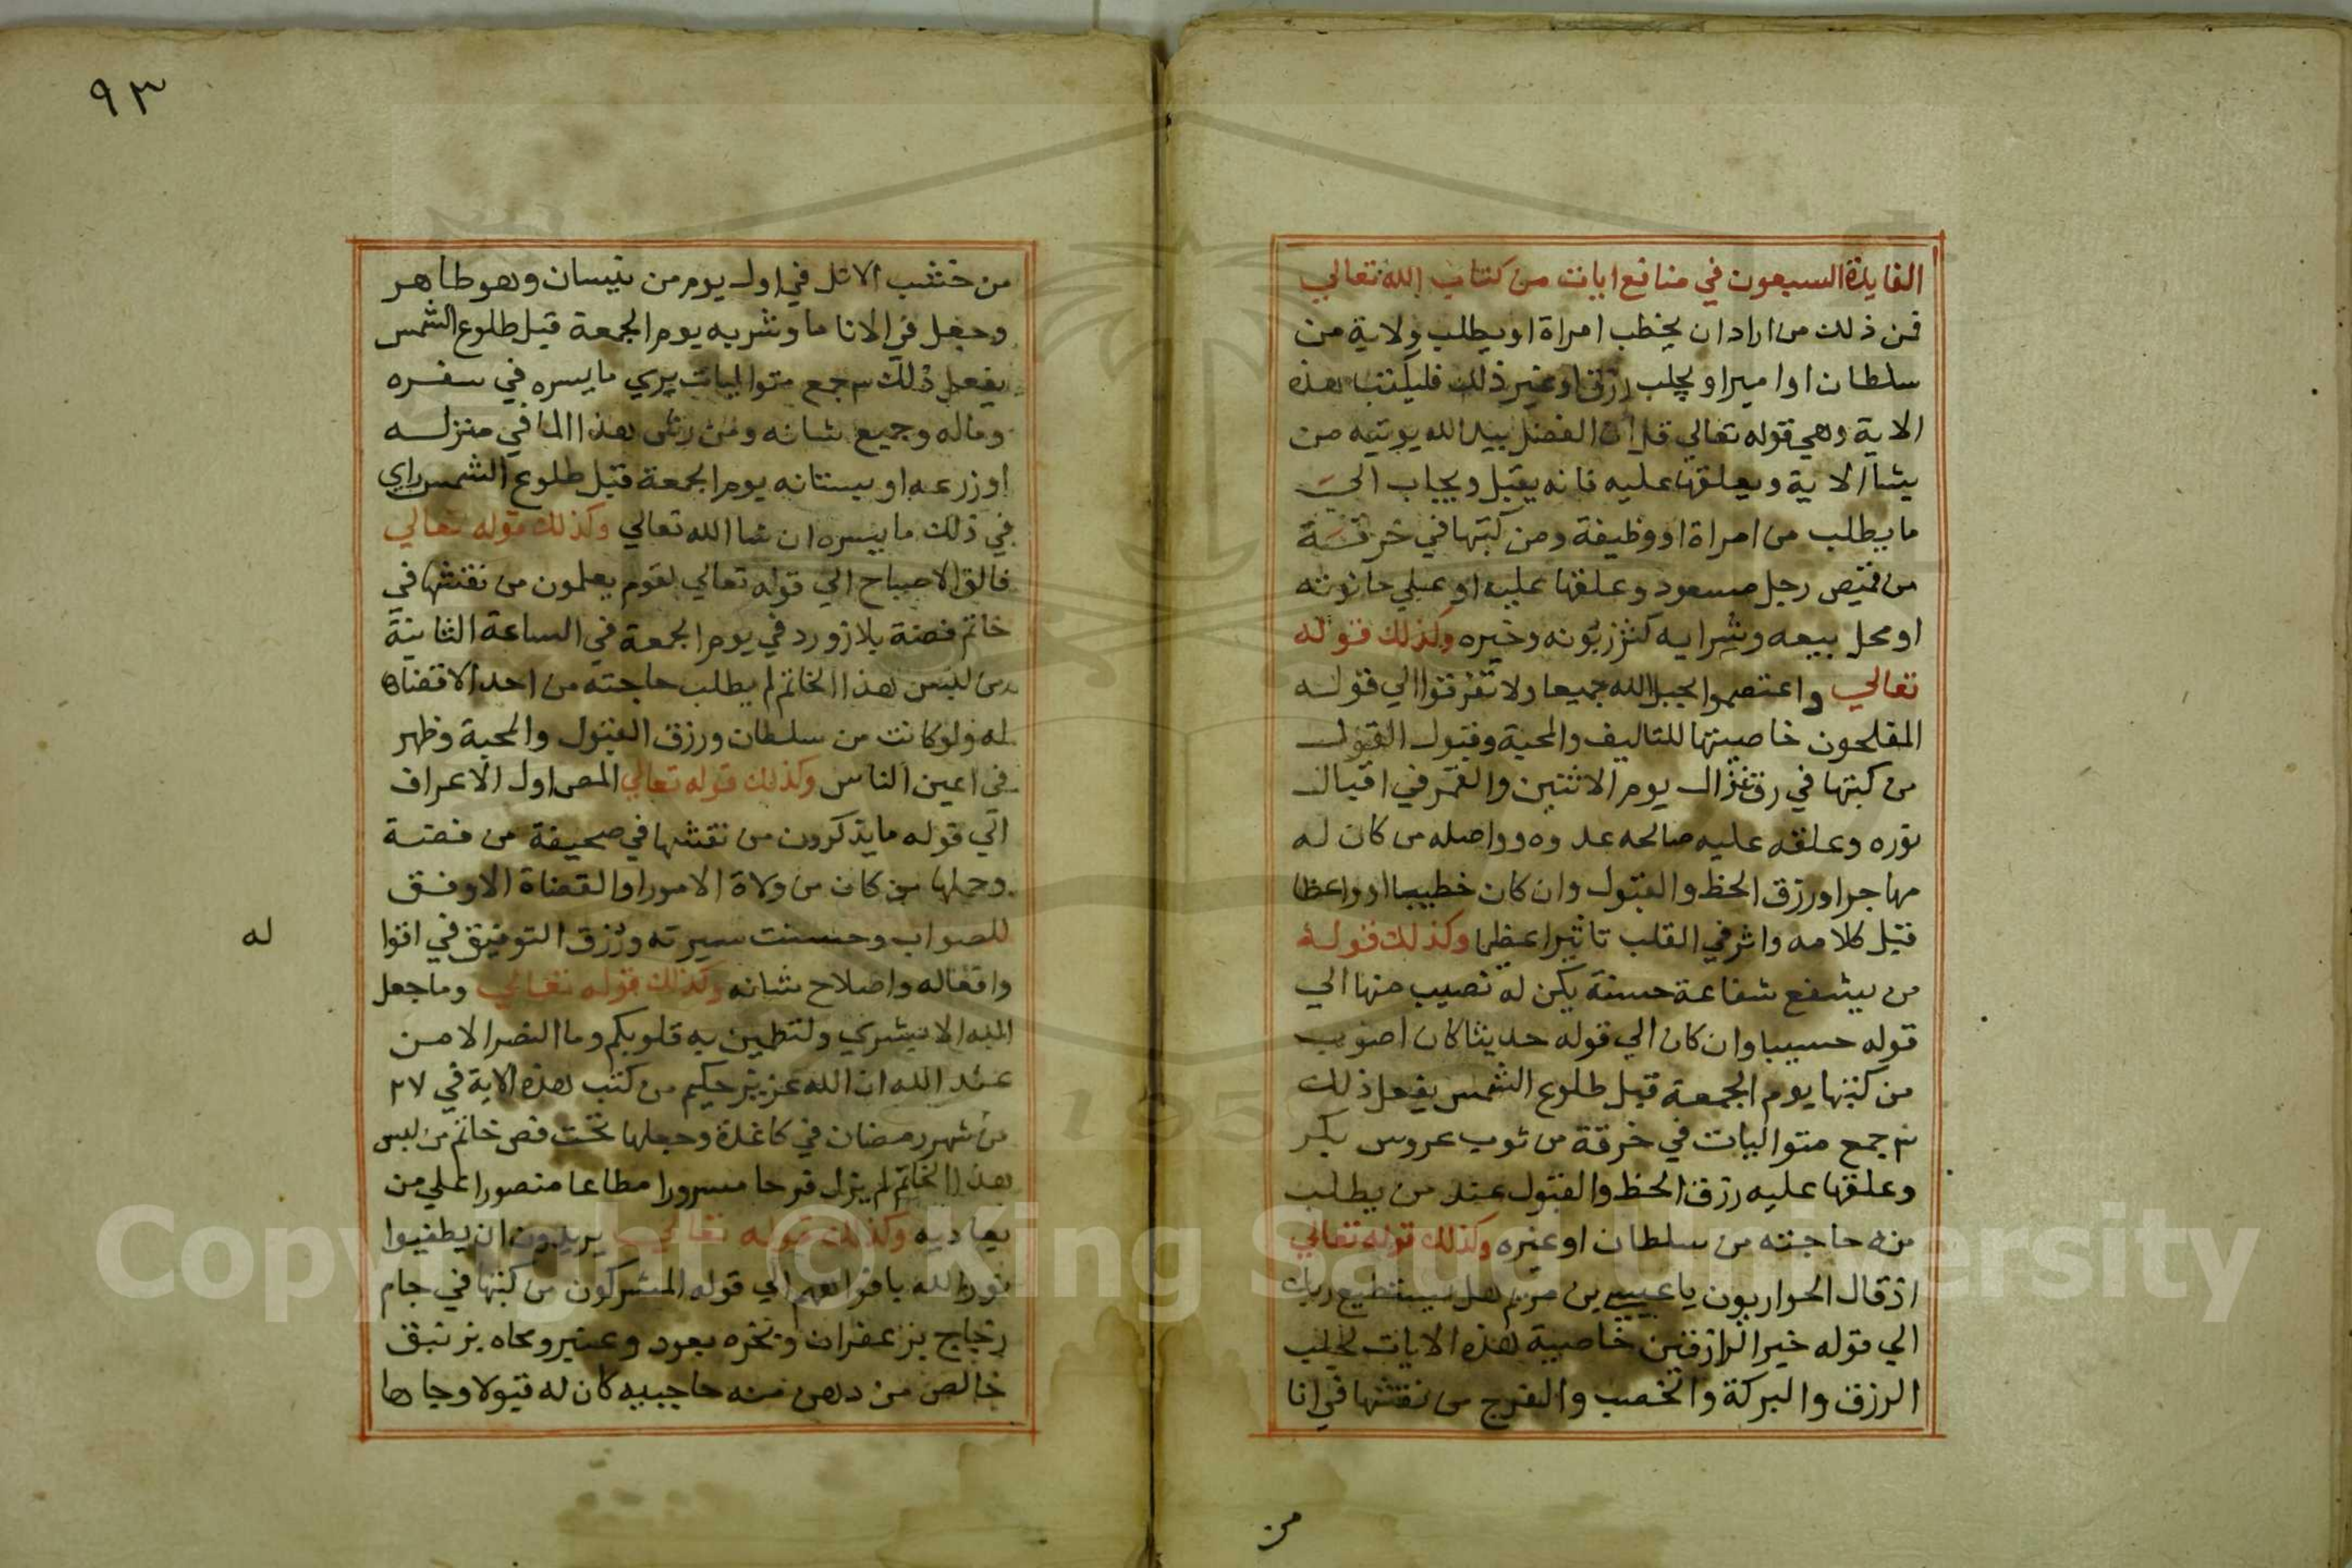 الفايدة السبعون في منافع ايات من كتاب الله تعالي
فمن ذلك من اراد ان يخطب امراة او يطلب ولاية من
سلطان او امير او يجلب رزق او غير ذلك فليكتب هذه
الاية وهي قوله تعالي قل ان الفضل بيد الله يوتيه من
يشا الاية ويعلقها عليه فانه يقبل ويجاب الي
ما يطلب من امراة او وظيفة ومن كتبها في خرقة
من قميص رجل مسعود وعلقها عليه او علي حانوته
او محل بيعه وشرايه كثر زبونه وخيره وكذلك قوله
تعالي واعتصموا بحبل الله جميعا ولا تفرقوا الي قوله
المفلحون خاصيتها للتاليف والمحبة وقبول القول
من كتبها في رق غزال يوم الاثنين والقمر في اقبال
نوره وعلقه عليه صالحه عدوه وواصله من كان له
مهاجرا ورزق الحظ والقبول وان كان خطيبا او واعظا
قبل كلامه واثر في القلب تاثيرا عظيما وكذلك قوله
من يشفع شفاعة حسنة يكن له نصيب منها الي
قوله حسيبا وان كان الي قوله حديثا كان اصوب
من كتبها يوم الجمعة قبل طلوع الشمس يفعل ذلك
٣ جمع متواليات في خرقة من ثوب عروس بكر
وعلقها عليه رزق الحظ والقبول عند من يطلب
منه حاجته من سلطان او غيره وكذلك قوله تعالي
اذ قال الحواريون يا عيسي بن مريم هل يستطيع ربك
الي قوله خير الرازقين خاصية هذه الايات لجلب
الرزق والبركة والخصب والفرج من نقشها في انا
من
٩٣
من خشب الاثل في اول يوم من نيسان وهو طاهر
وجعل في الانا ما وشربه يوم الجمعة قبل طلوع الشمس
يفعل ذلك ٣ جمع متواليات يري ما يسره في سفره
وماله وجميع شانه ومن رش هذا الما في منزله
او زرعه او بستانه يوم الجمعة قبل طلوع الشمس راي
في ذلك ما يسره ان شا الله تعالي وكذلك قوله تعالي
فالق الاصباح الي قوله تعالي لقوم يعلمون من نقشها في
خاتم فضة بلازورد في يوم الجمعة في الساعة الثانية
من لبس هذا الخاتم لم يطلب حاجته من احد الا قضاها
له ولو كانت من سلطان ورزق القبول والمحبة وظهر
في اعين الناس وكذلك قوله تعالي المص اول الاعراف
الي قوله ما يذكرون من نقشها في صحيفة من فضة
وحملها من كان من ولاة الامور او القضاة الا وفق
للصواب وحسنت سيرته ورزق التوفيق في اقوا
له
وافعاله واصلاح شانه وكذلك قوله تعالي وما جعل
الله الا بشري ولتطمين به قلوبكم وما النصر الا من
عند الله ان الله عزيز حكيم من كتب هذه الاية في ٢٧
من شهر رمضان في كاغدة وجعلها تحت فص خاتم من لبس
هذا الخاتم لم يزل فرحا مسرورا مطاعا منصورا علي من
يعاديه وكذلك قوله تعالي يريدون ان يطفيوا
نور الله بافواههم الي قوله المشركون من كتبها في جام
زجاج بزعفران وبخره بعود وعنبر ومحاه بزنبق
خالص من دهن منه حاجبيه كان له قبولا وجاها
Copyright © King Saud University
195